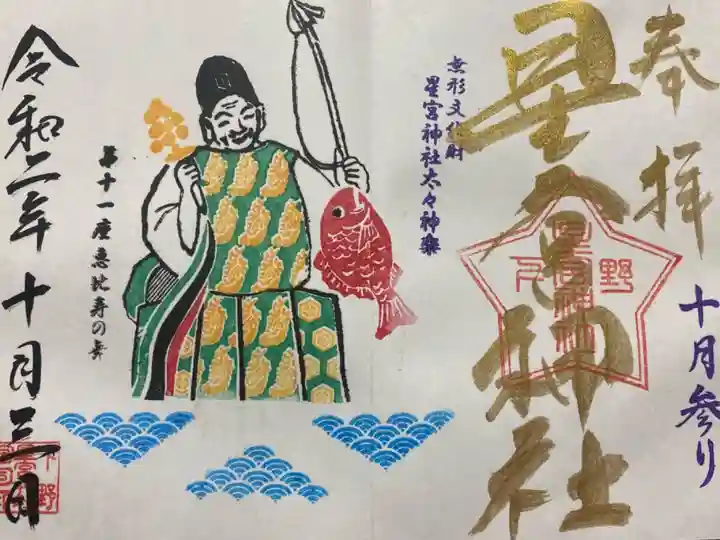 奉拝
十月参り
星宮神社
下野
星宮神社
無形文化財
星宮神社太々神楽
第十一座恵比寿の舞
令和二年十月三日